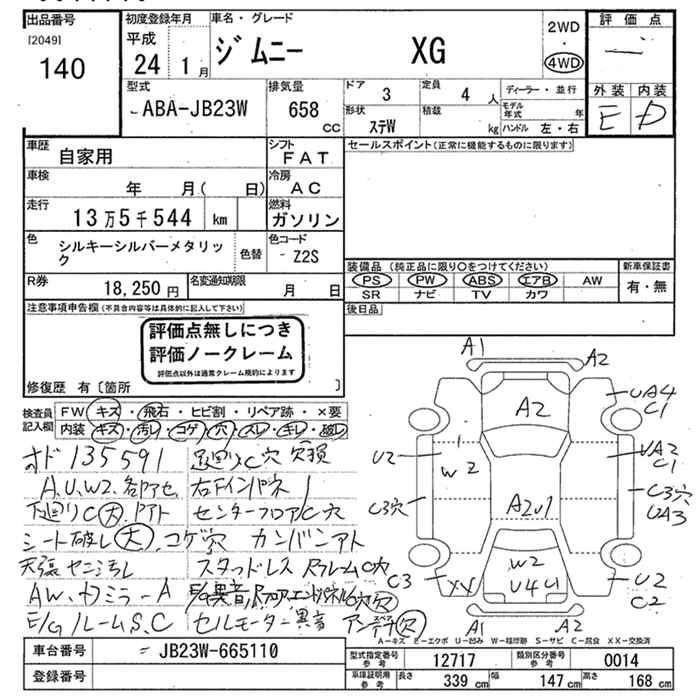 出品番号
[2049]
140
初度登録年月
平成
24 1月
車名・グレード
ジムニー XG
2WD
・
4WD
評価点
外装 内装
E D
型式
ABA-JB23W
排気量
658
CC
ドア 3
定員 4 人
形状 ステW
積載 kg
ディーラー・並行
モデル年式 年
ハンドル 左・右
車歴 自家用
シフト FAT
車検 年 月( 日)
冷房 AC
走行 13万5千544 km
燃料 ガソリン
色 シルキーシルバーメタリック
色替
色コード Z2S
R券 18,250円
名変通知期限 月 日
セールスポイント(正常に機能するものに限ります)
装備品 (純正品に限り○をつけてください)
PS PW ABS エアB AW
SR ナビ TV カワ
新車保証書
有・無
後日品
注意事項申告欄(不具合内容等は具体的に記入して下さい)
評価点無しにつき
評価ノークレーム
評価点以外は通常クレーム規約によります
修復歴 有〔箇所 〕
検査員記入欄
FW キズ・飛石・ヒビ割・リペア跡・×要
内装 キズ・汚レ・コゲ・穴・スレ・キレ・破レ
オド 135591 足廻りC穴 欠損
A,U,W2,各部アセ 右ドインパネ
下廻りC大,ドアアト センターフロアC穴
シート破レ大,コゲ穴 カンバンアト
天張ヤニ汚レ スタッドレス RフレームC穴
AW,カワミラーA
E/GルームS,C セルモーター異音 アンテナ欠
A1 A2
A2
UA4
C1
U2
W2
UA2
C1
C3穴
C3穴
UA3
A2U1
W2
U4U1
C3
XX
U2
C2
A1 A2
A-キズ E-エクボ U-凹み W-補修跡 S-サビ C-腐食 XX-交換済
車台番号 JB23W-665110
登録番号
型式指定番号 参考 12717
類別区分番号 参考 0014
車庫証明用 参考 長さ 339 cm 幅 147 cm 高さ 168 cm